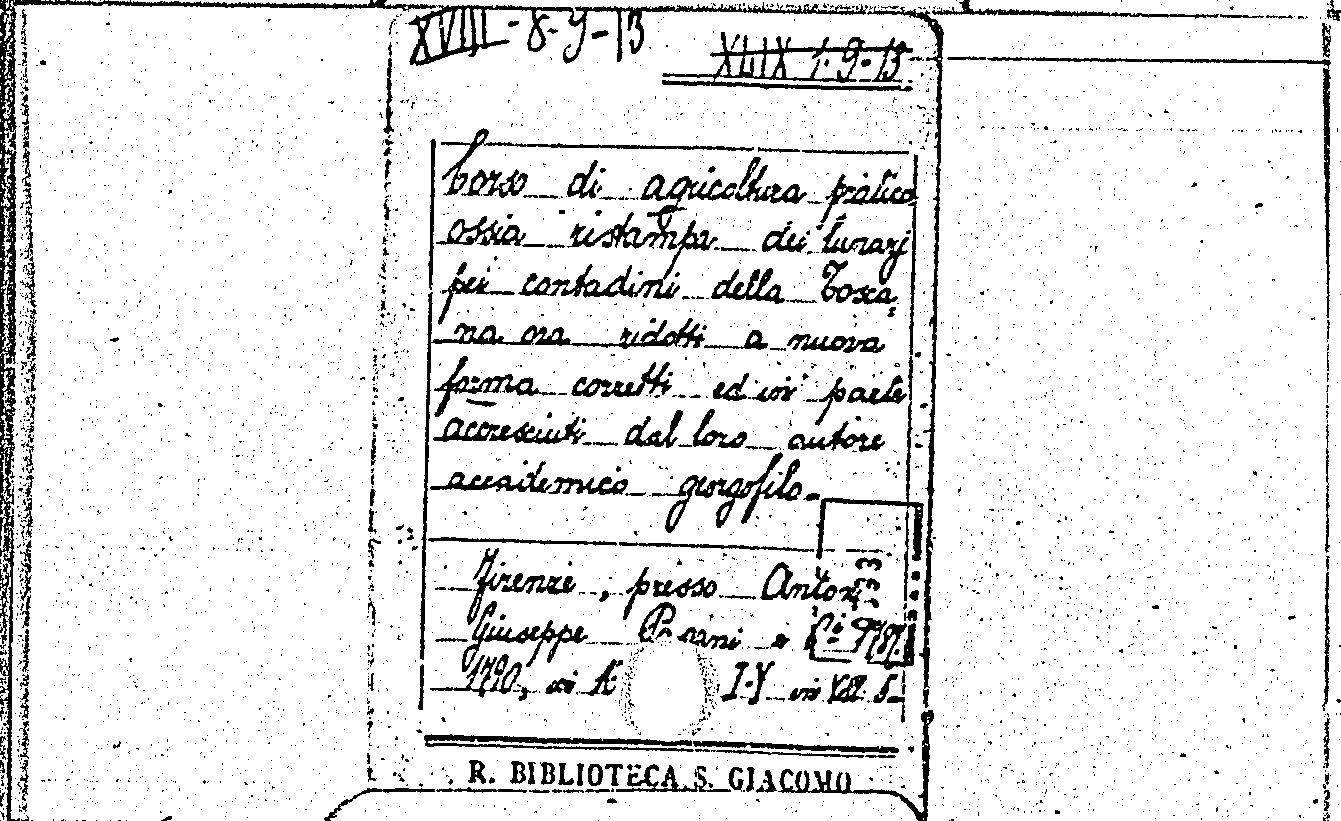 XVIII-8-9-13
XLIX 1-9-13
Corso di agricoltura pratica
ossia ristampa dei lunarj
pei contadini della Tosca,
na ora ridotti a nuova
forma corretti ed in parte
accresciuti dal loro autore
accademico georgofilo.
Firenze, presso Anton
Giuseppe Pagani e 1787.
1790, in I-V in 8.
R. BIBLIOTECA S. GIACOMO